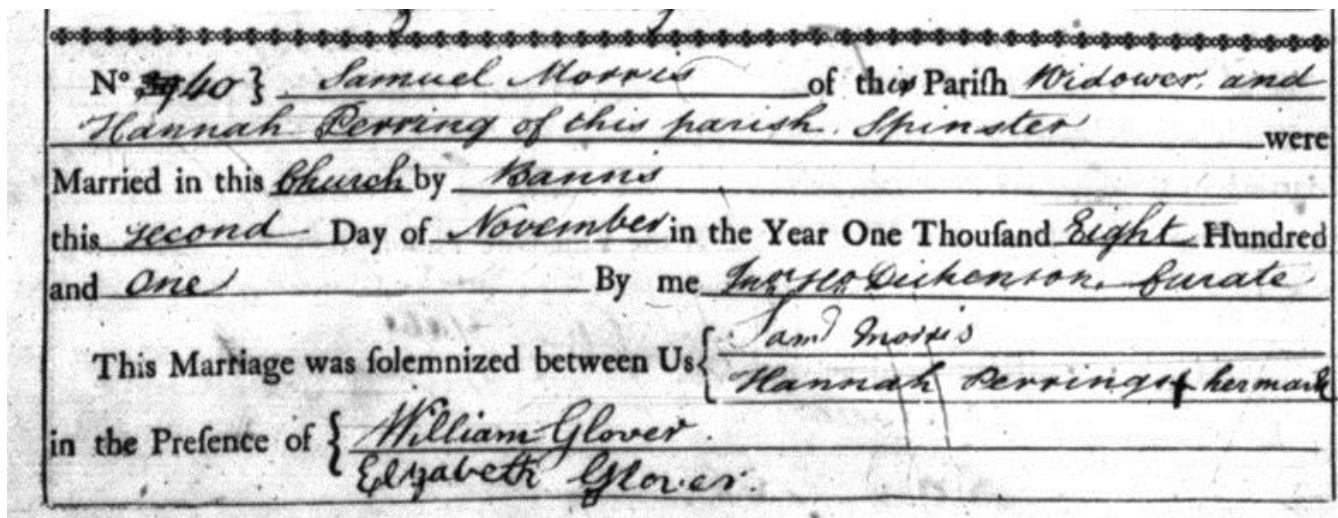 No 40 } Samuel Morris of this Pariſh Widower, and
Hannah Perring of this parish Spinster were
Married in this Church by Banns
this second Day of November in the Year One Thouſand Eight Hundred
and One By me Dickenson, Curate
This Marriage was ſolemnized between Us { Saml Morris
Hannah Perring + her mark
in the Preſence of { William Glover.
Elizabeth Glover.